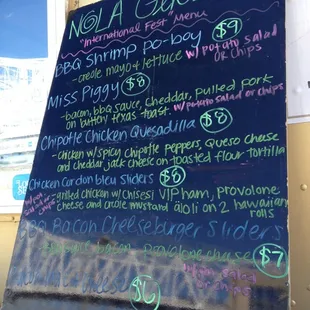 NOLA
"International Fest" Menu
BBQ Shrimp po-boy $9
-creole mayo & lettuce w/ potato salad or chips
Miss Piggy $8
-bacon, BBQ sauce, cheddar, pulled pork
on buttery texas toast. w/ potato salad or chips
Chipotle Chicken Quesadilla $8
-chicken w/ spicy chipotle peppers, queso cheese
and cheddar jack cheese on toasted flour tortilla
Chicken Cordon bleu Sliders $8
-grilled chicken w/ Chisesi VIP ham, provolone
cheese and creole mustard aioli on 2 hawaiian
rolls
BBQ Bacon Cheeseburger Sliders
bacon, provolone cheese $7
salad
or chips
$6